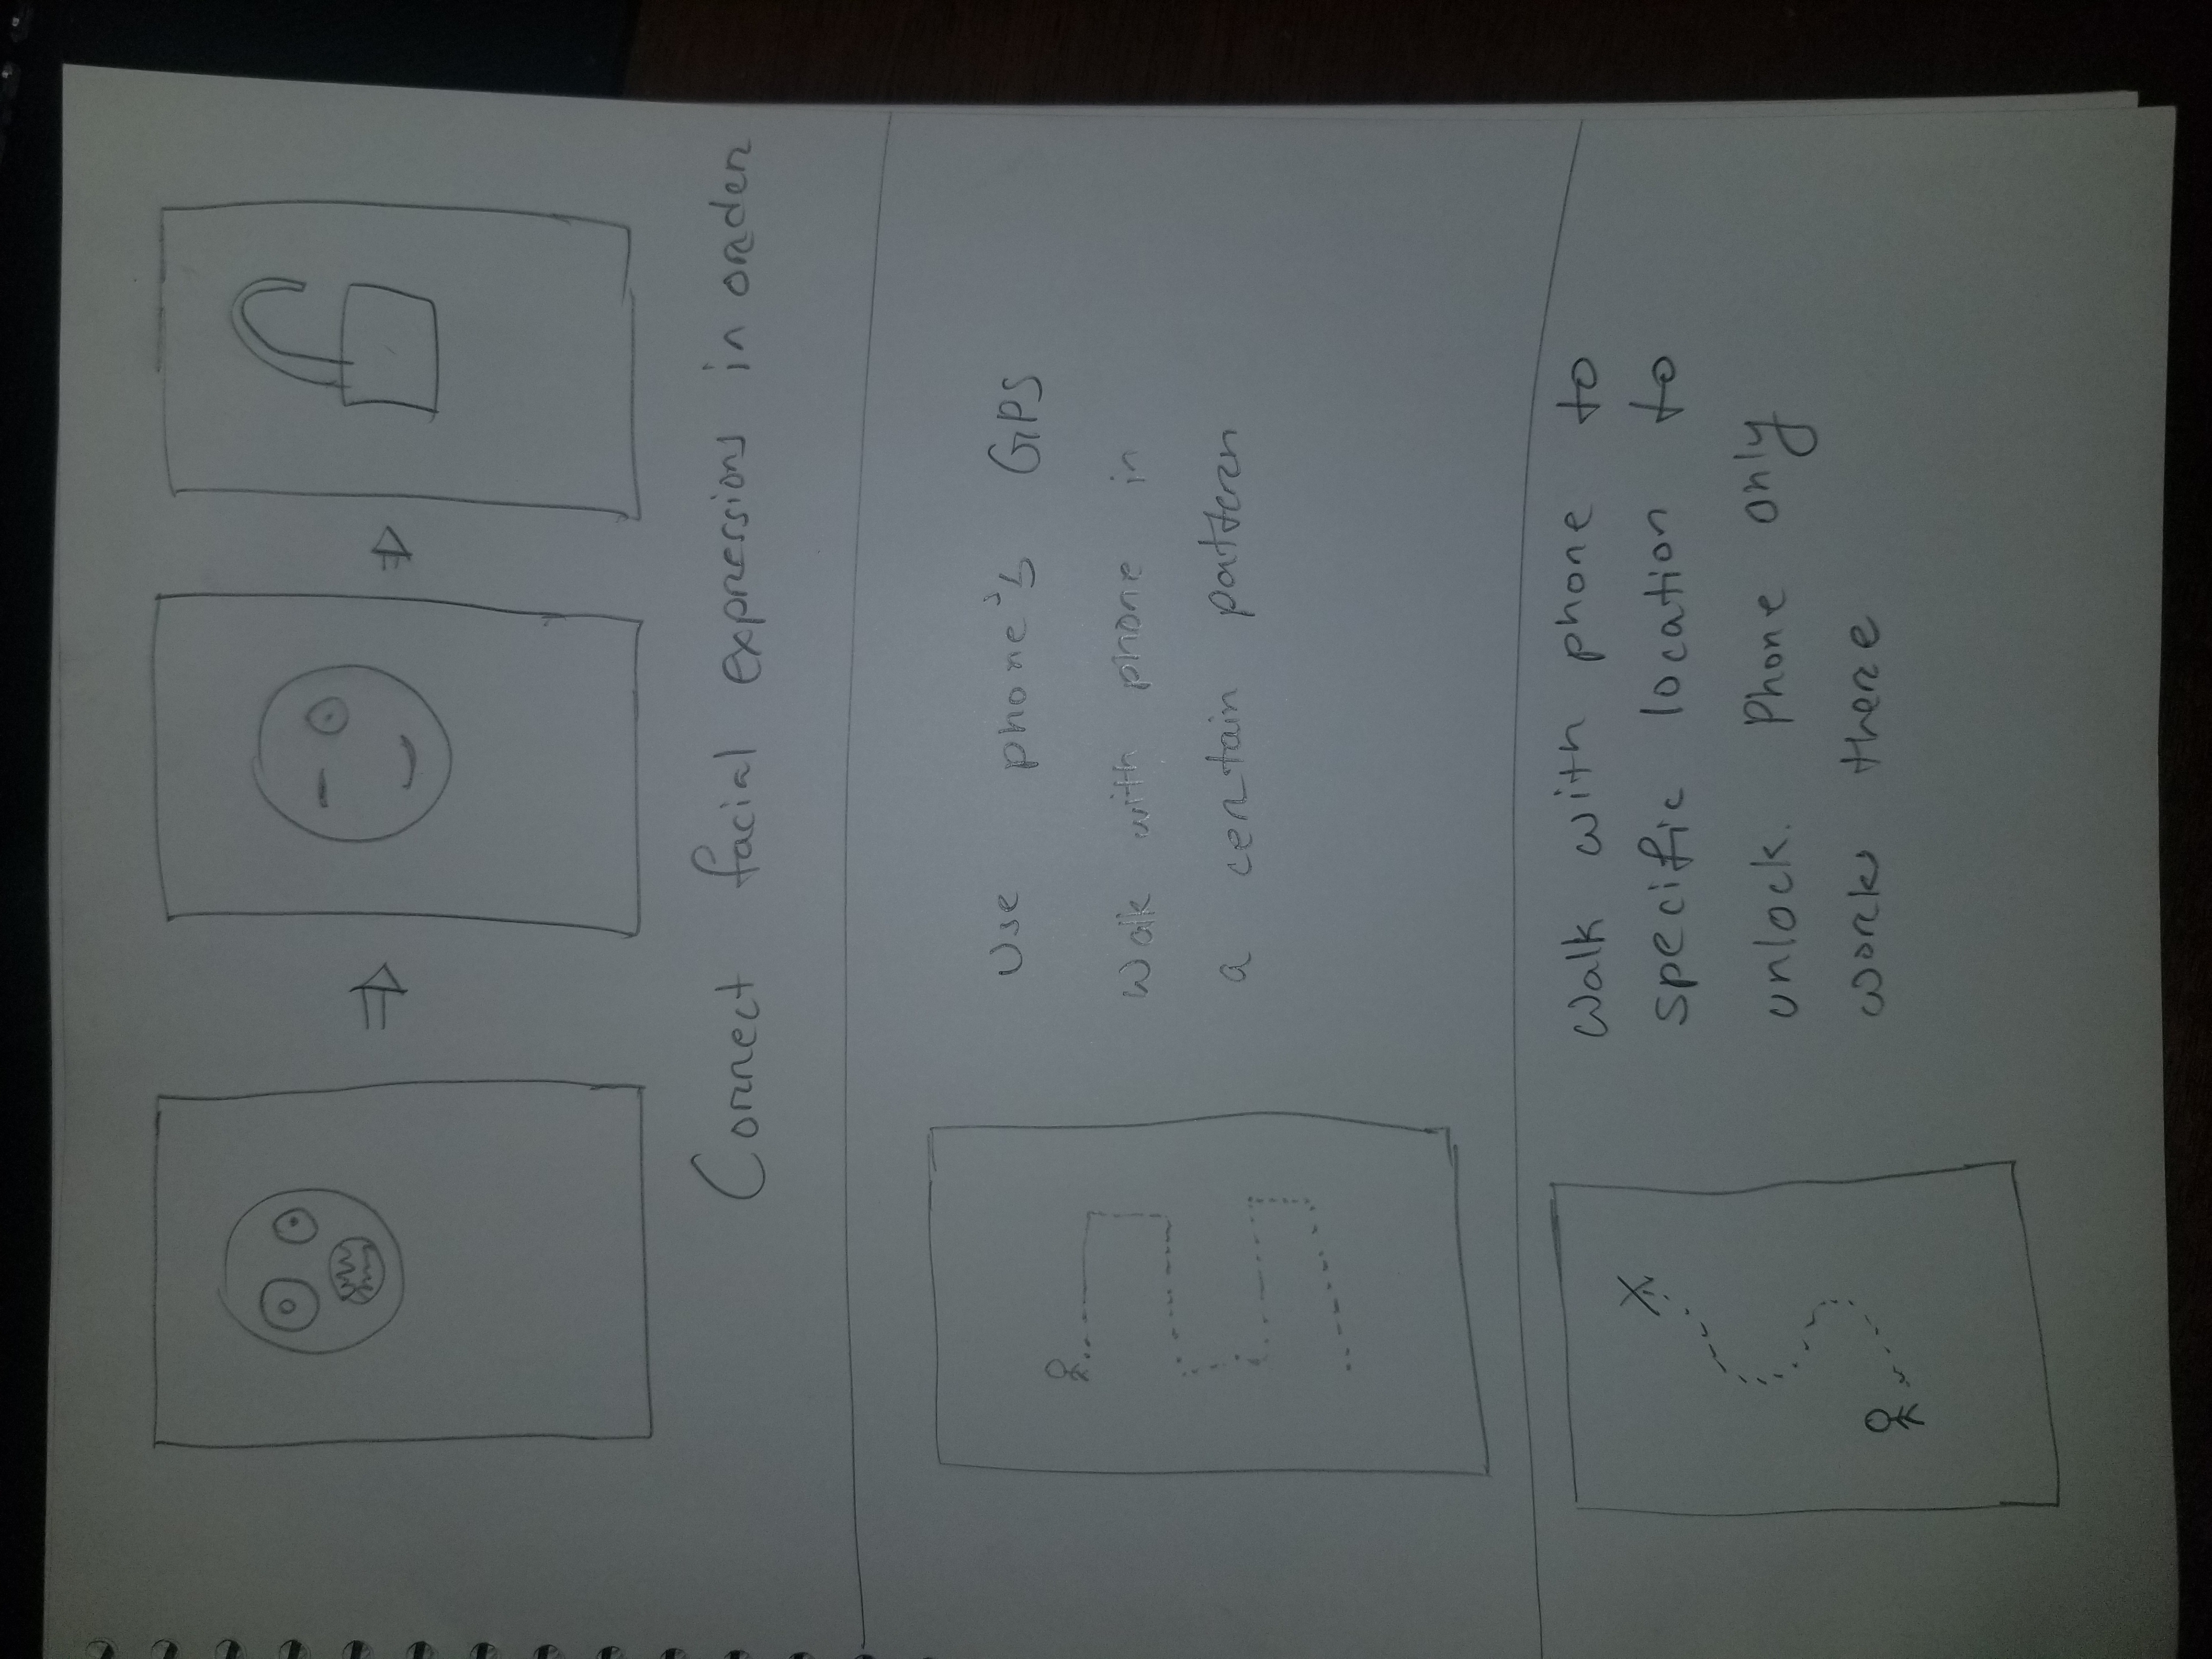 Connect facial expressions in order
Use phone's GPS
Walk with phone in
a certain pattern
Walk with phone to
specific location to
unlock. Phone only
works there